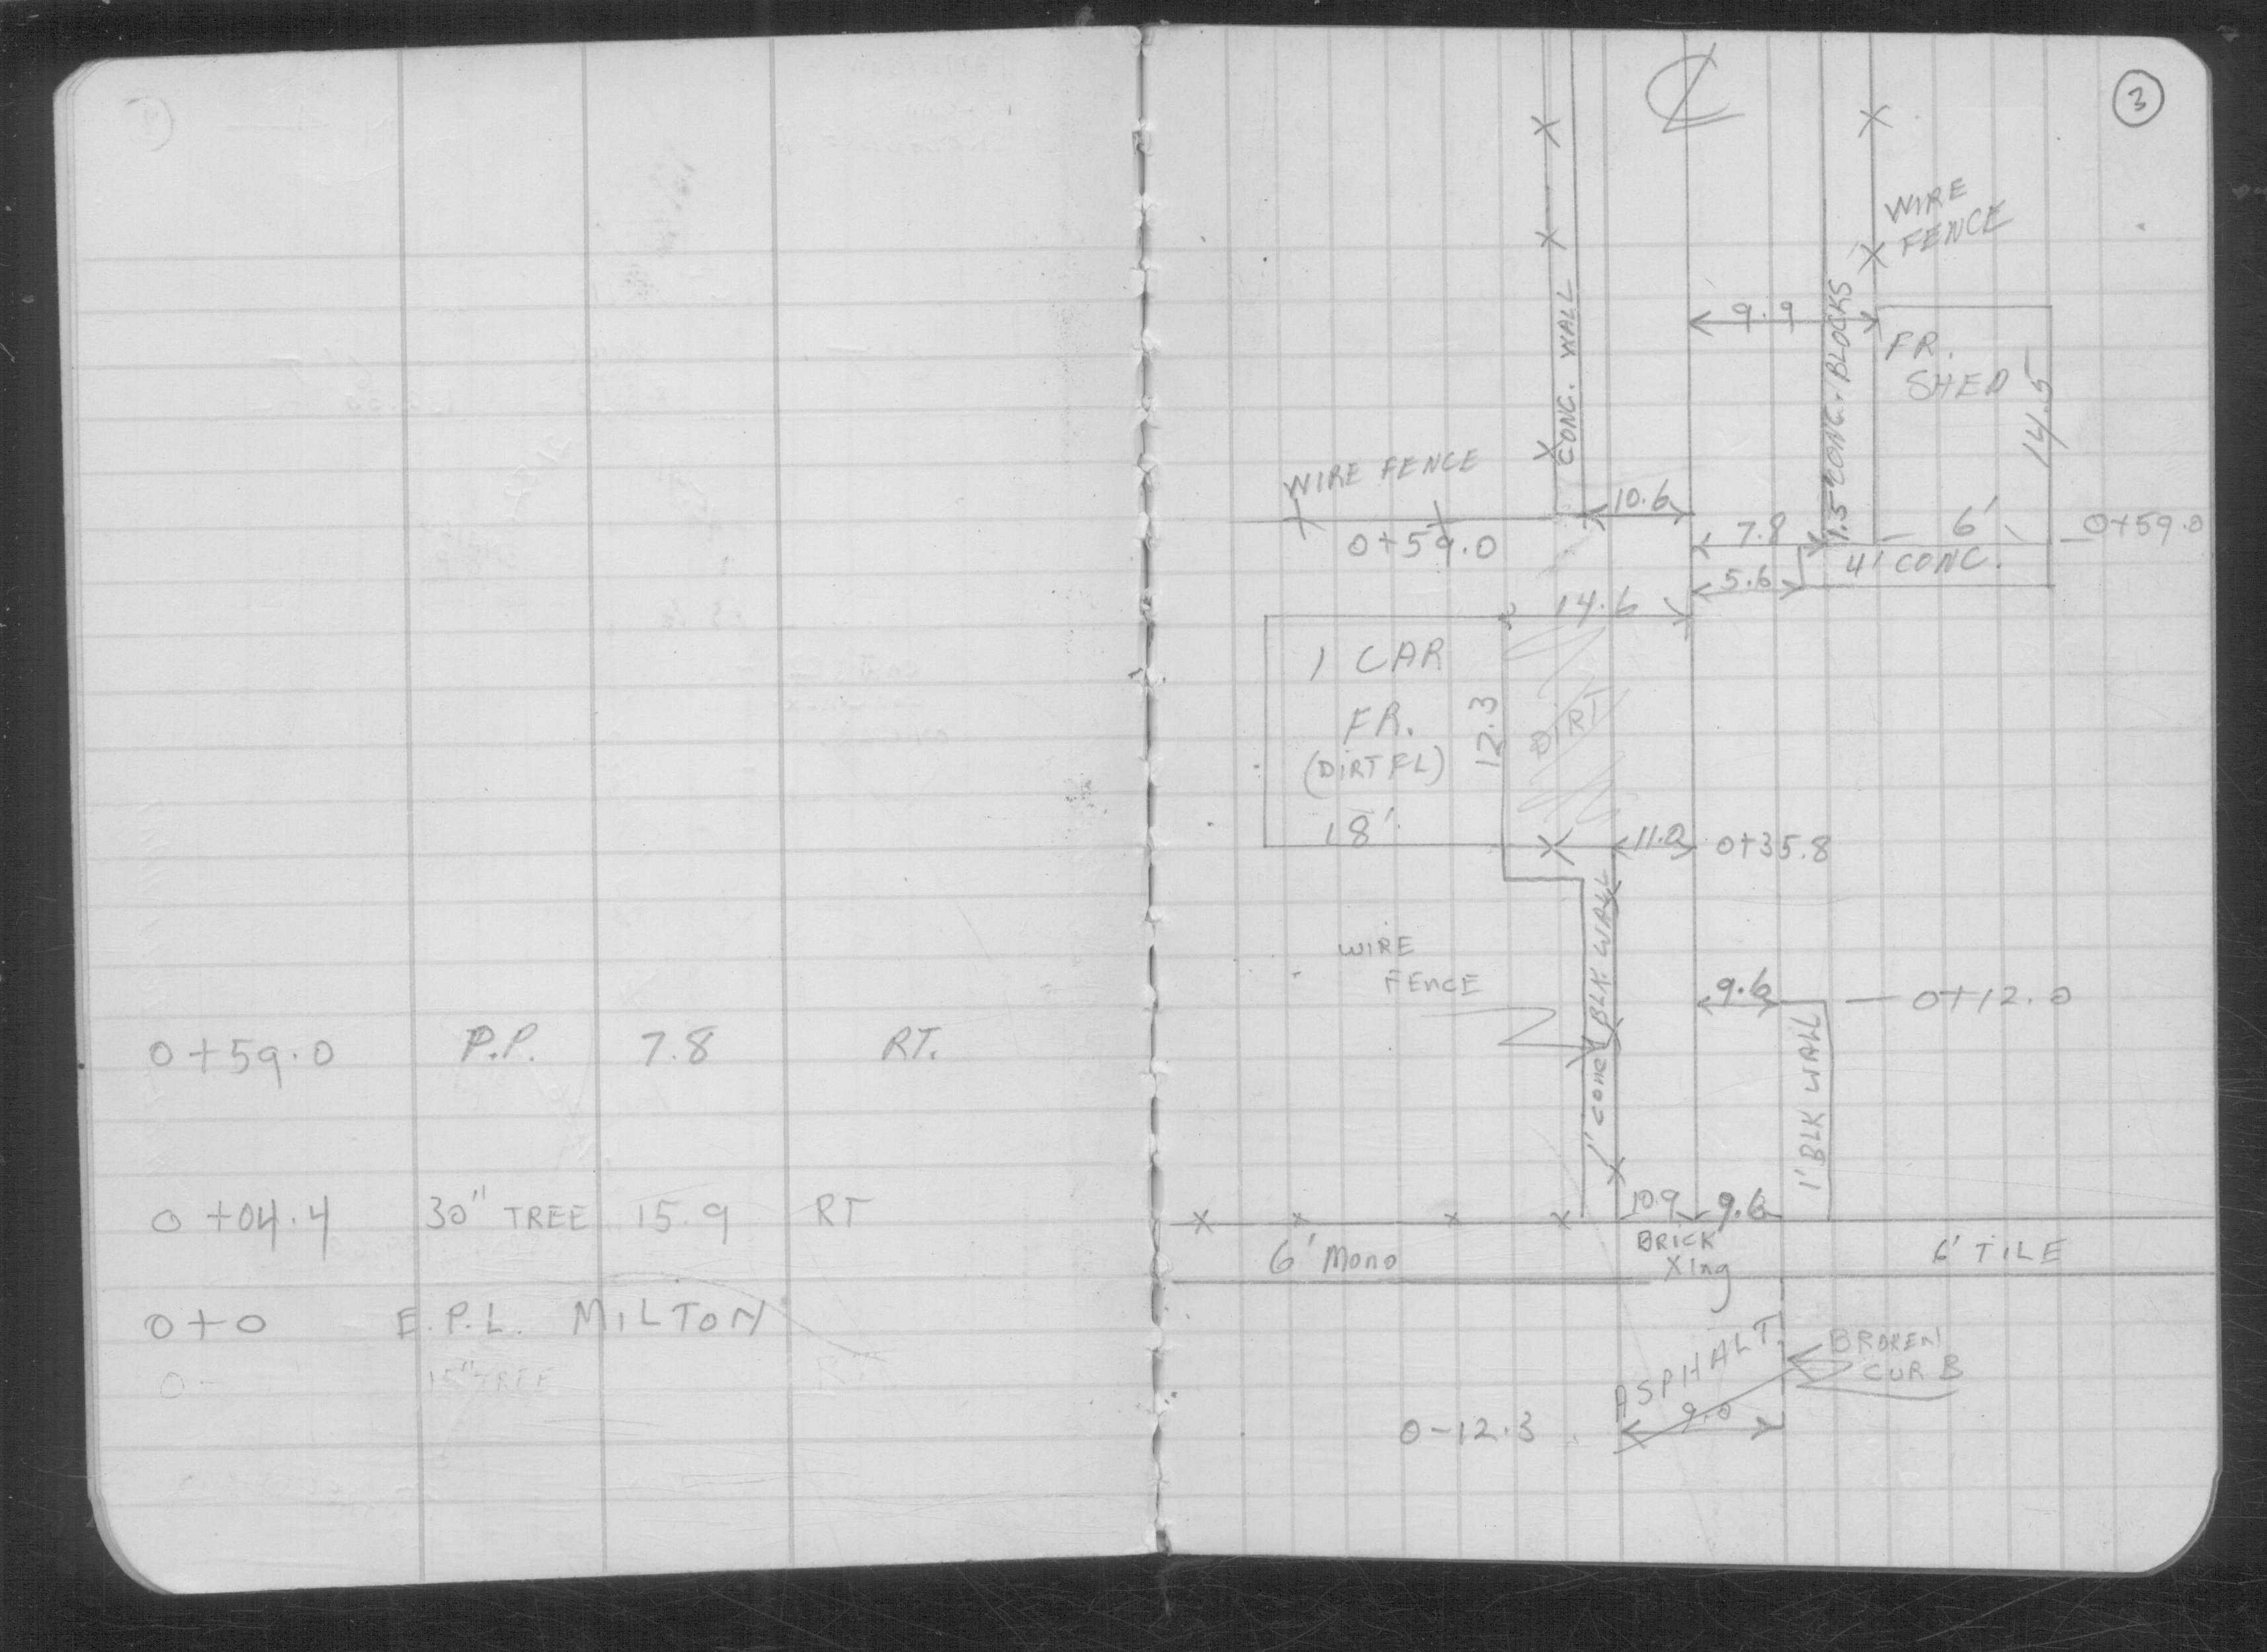 0+59.0 P.P. 7.8 RT.
0+04.4 30" TREE 15.9 RT
0+0 E.P.L. MILTON
0- 15" TREE
3
℄
WIRE
FENCE
9.9
CONC. WALL
1.5' CONC. BLOCKS
FR.
SHED
14.5
WIRE FENCE
10.6
0+59.0
7.8
6'
0+59.0
5.6
4' CONC.
14.6
1 CAR
FR.
(DIRT FL)
18'
12.3
DIRT
11.0
0+35.8
WIRE
FENCE
1' CONC BLK. WALL
9.6
0+12.0
1' BLK WALL
10.9
9.6
6' MONO
BRICK
Xing
6' TILE
ASPHALT
BROKEN
CURB
9.0
0-12.3